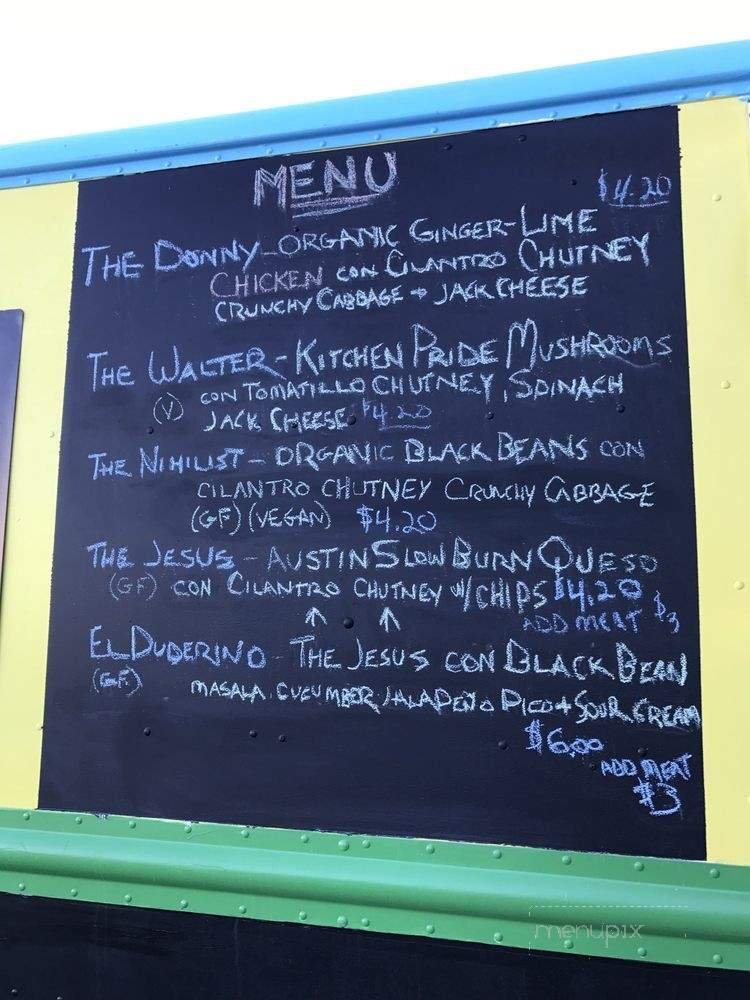 MENU
$4.20
THE DONNY - ORGANIC GINGER-LIME
CHICKEN CON CILANTRO CHUTNEY
CRUNCHY CABBAGE + JACK CHEESE
THE WALTER - KITCHEN PRIDE MUSHROOMS
(V) CON TOMATILLO CHUTNEY, SPINACH
JACK CHEESE $4.20
THE NIHILIST - ORGANIC BLACK BEANS CON
CILANTRO CHUTNEY CRUNCHY CABBAGE
(GF) (VEGAN) $4.20
THE JESUS - AUSTIN SLOW BURN QUESO
(GF) CON CILANTRO CHUTNEY W/ CHIPS $4.20
ADD MEAT $3
↑ ↑
EL DUDERINO - THE JESUS CON BLACK BEAN
(GF) MASALA CUCUMBER JALAPEÑO PICO + SOUR CREAM
$6.00
ADD MEAT
$3
menupix